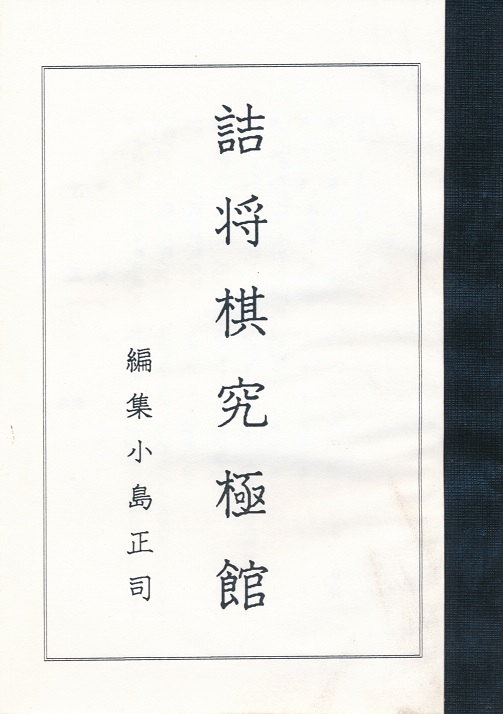 詰将棋究極館
編集小島正司